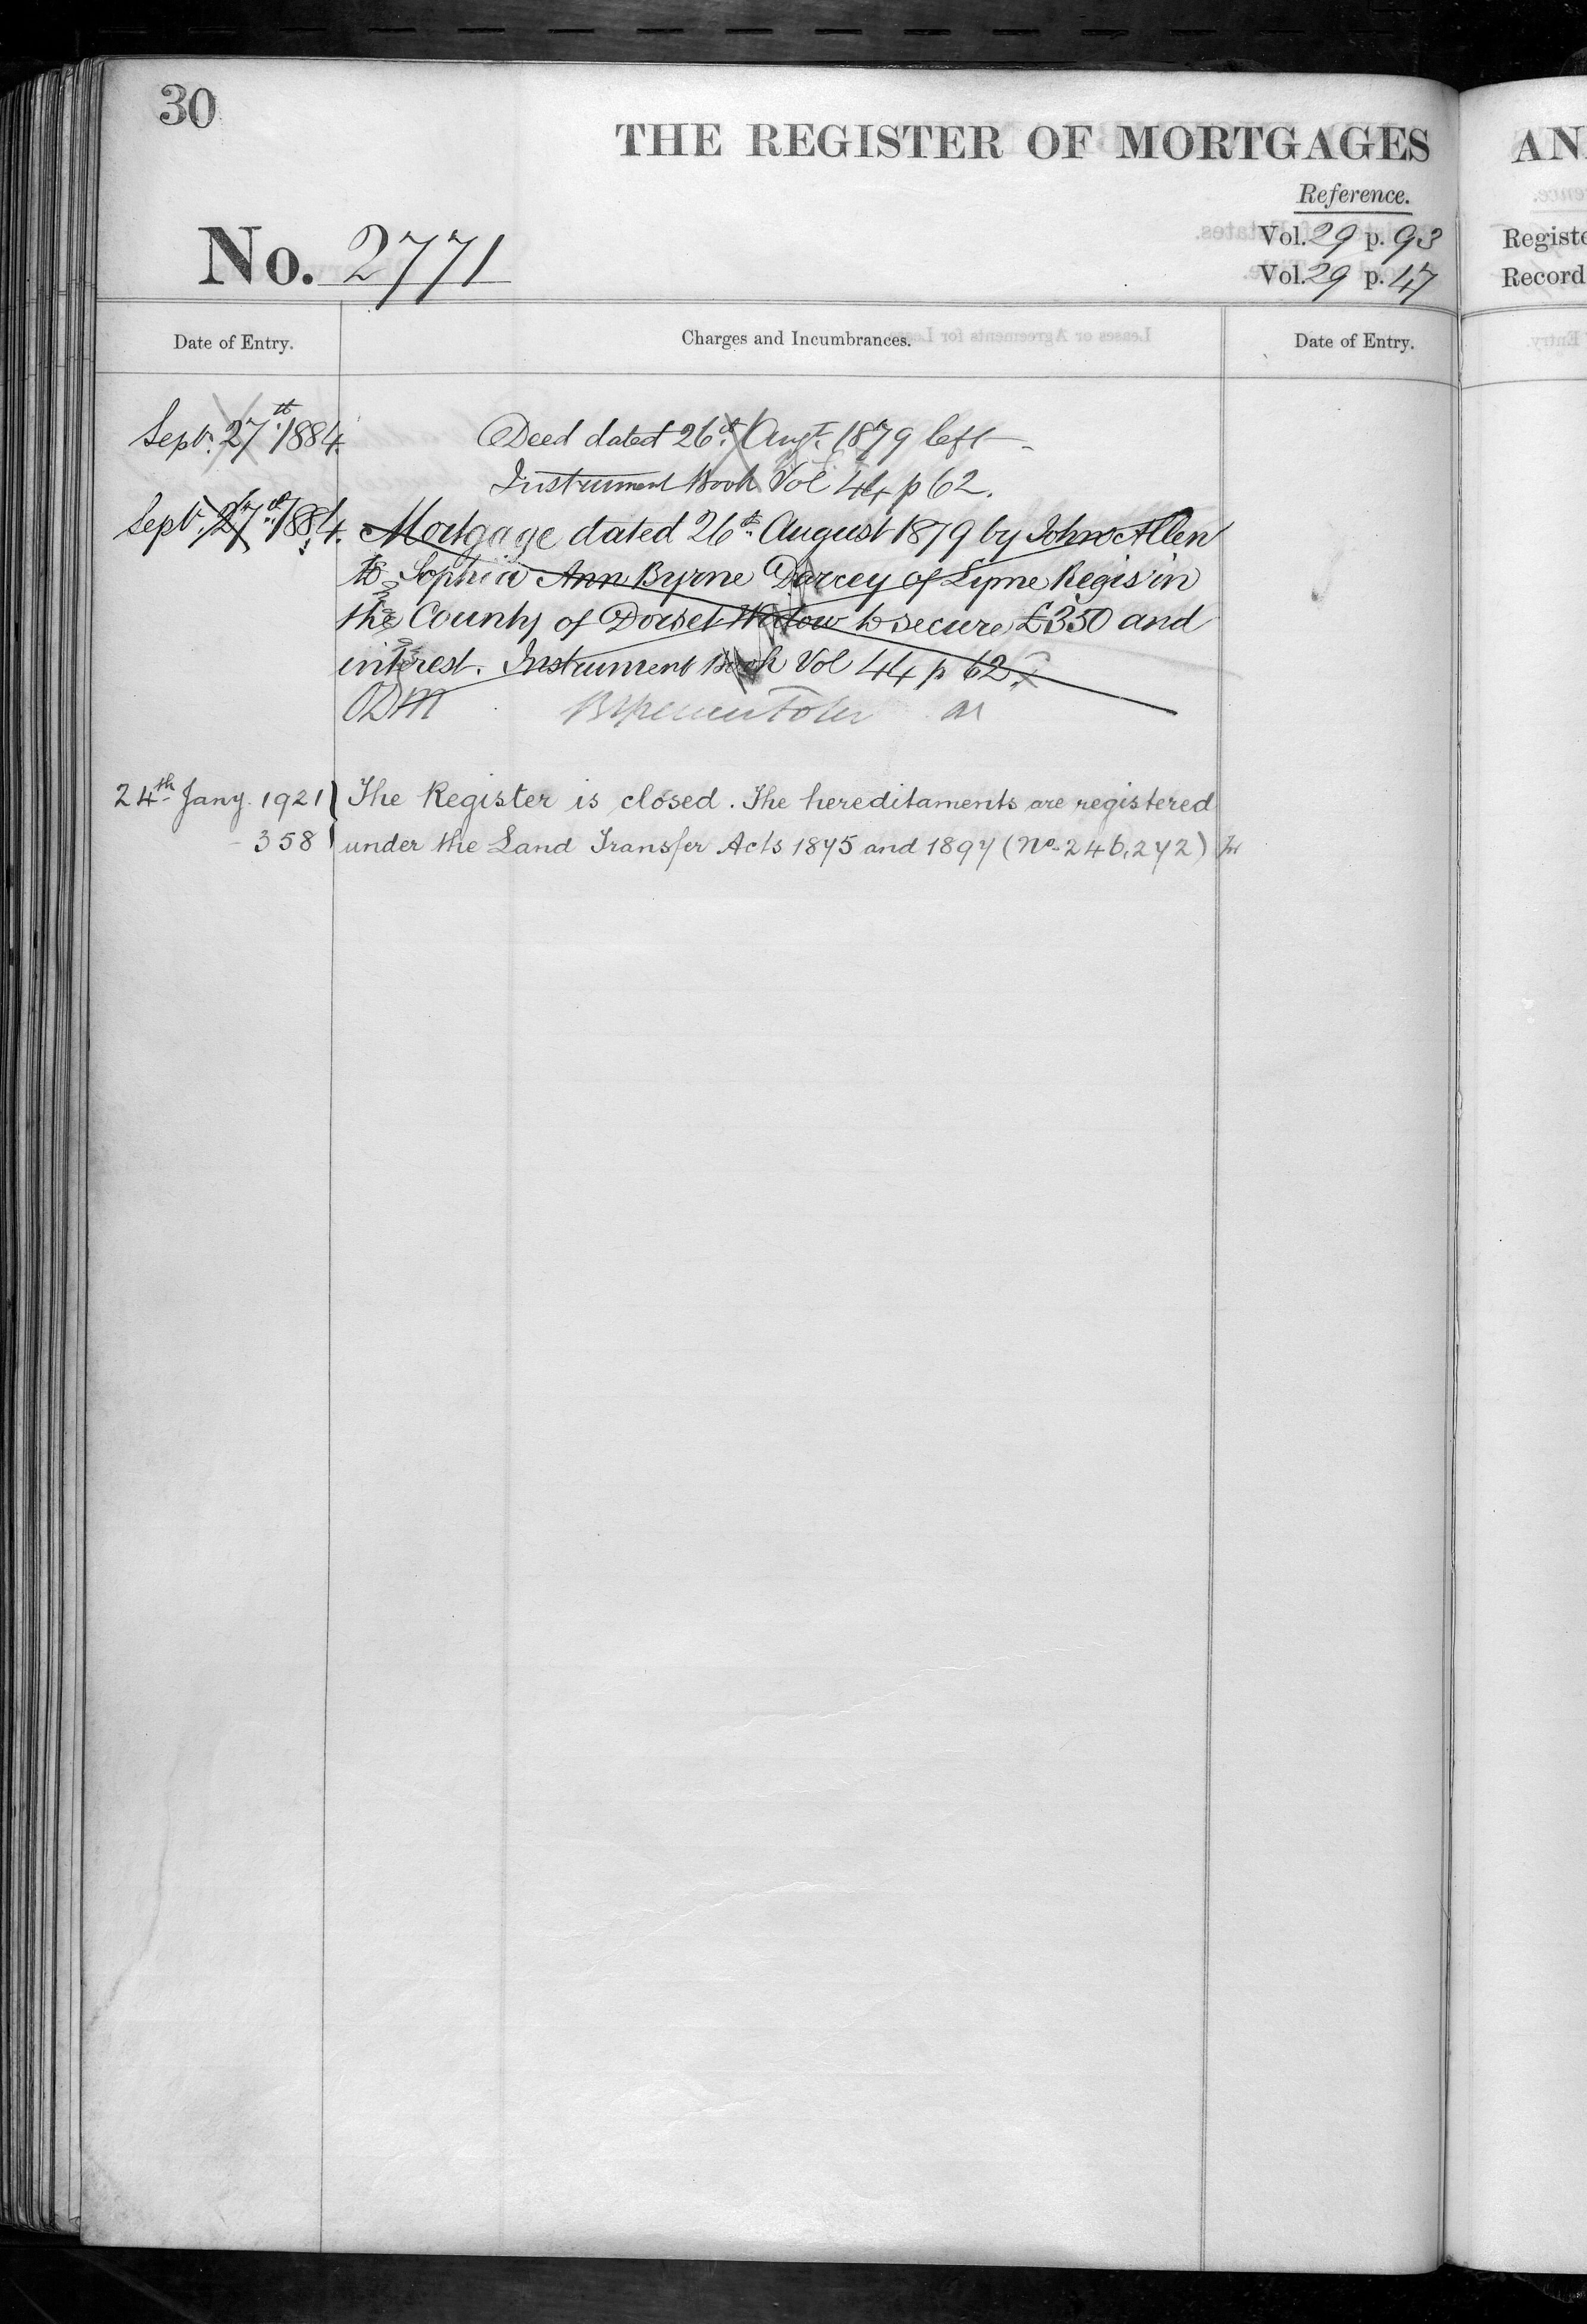 30
THE REGISTER OF MORTGAGES
AN
Reference.
No. 2771
Vol. 29 p. 93
Registe
Vol. 29 p. 47
Record
Date of Entry.
Charges and Incumbrances.
Date of Entry.
Sept. 27th 1884.
Deed dated 26th Augt. 1879 left
Instrument Book Vol 44 p 62.
Sept. 27th 1884.
Mortgage dated 26th August 1879 by John Allen
to Sophia Ann Byrne Darcey of Lyme Regis in
the County of Dorset Widow to secure £350 and
interest. Instrument Book Vol 44 p 62.
24th Jany. 1921
The Register is closed. The hereditaments are registered
358
under the Land Transfer Acts 1875 and 1897 (No. 246,272)